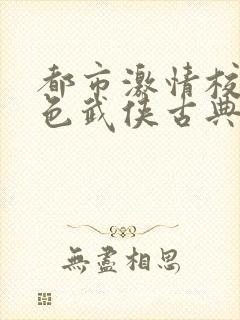 都市激情校
色武侠古典
無盡相思